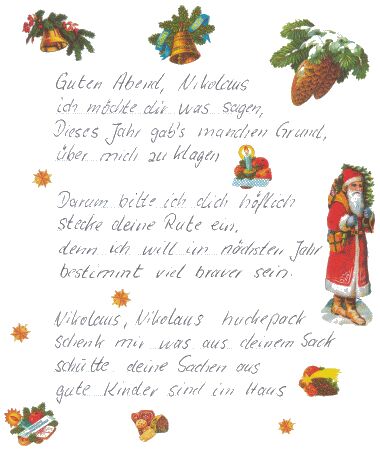 Guten Abend, Nikolaus
ich möchte dir was sagen,
Dieses Jahr gab's manchen Grund,
über mich zu klagen
Darum bitte ich dich höflich
stecke deine Rute ein,
denn ich will im nächsten Jahr
bestimmt viel braver sein.
Nikolaus, Nikolaus huckepack
schenk mir was aus deinem Sack
schütte deine Sachen aus
gute Kinder sind im Haus